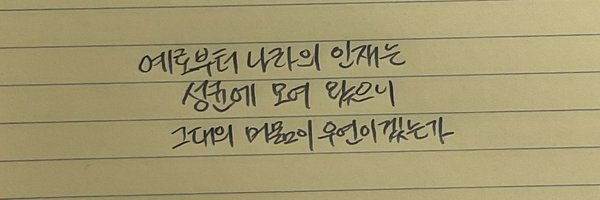 예로부터 나라의 인재는
성균에 모여 왔으니
그대의 머묾이 우연이겠는가